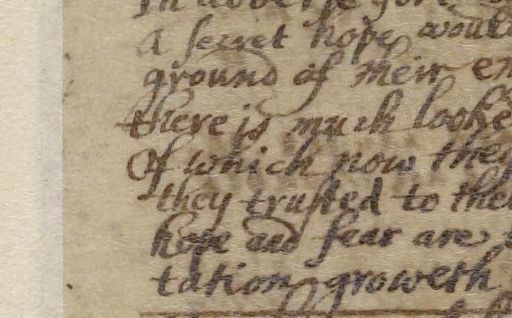 In adverse for
a secret hope would
ground of their en
there is much looke
Of which now they
they trusted to the
hope and fear are
tation groweth